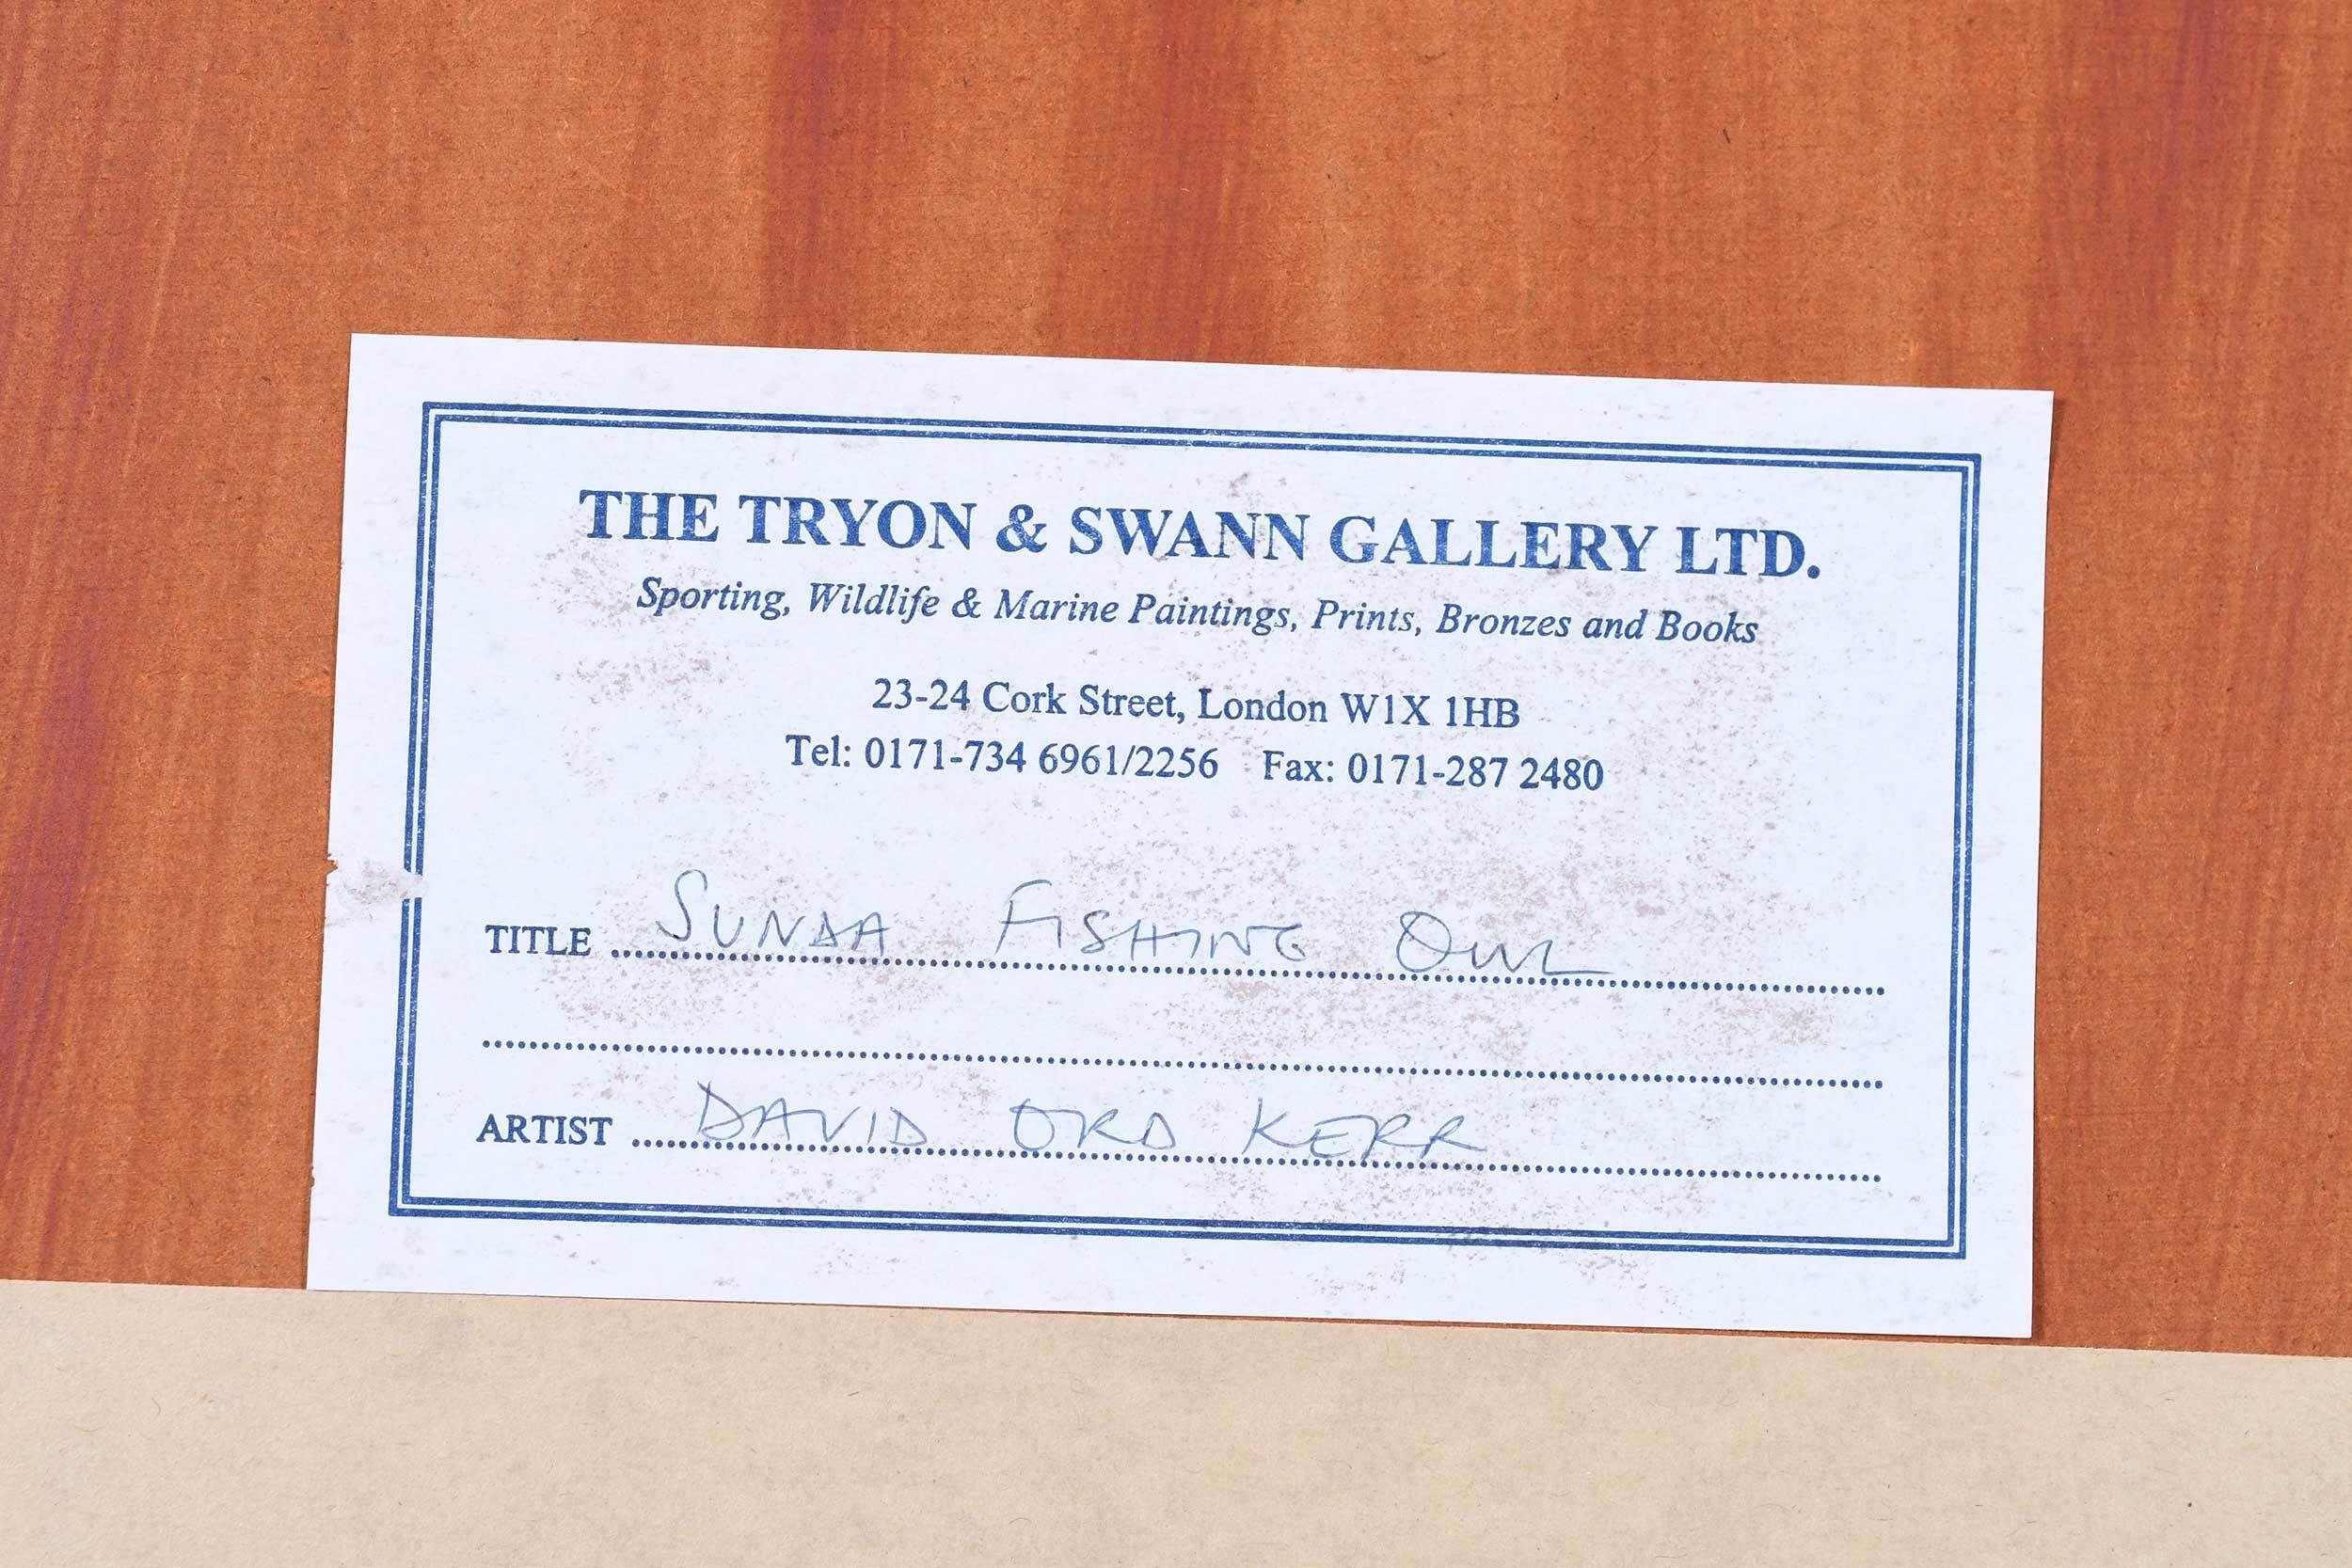 THE TRYON & SWANN GALLERY LTD.
Sporting, Wildlife & Marine Paintings, Prints, Bronzes and Books
23-24 Cork Street, London W1X 1HB
Tel: 0171-734 6961/2256 Fax: 0171-287 2480
TITLE SUNDA FISHING OWL
ARTIST DAVID ORD KERR